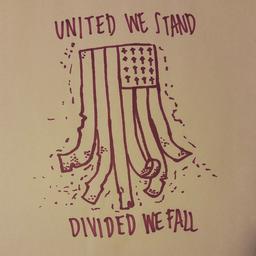 UNITED WE STAND
DIVIDED WE FALL